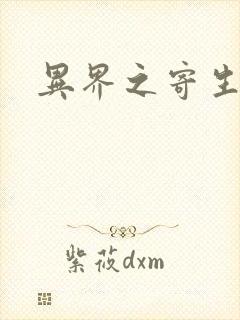 異界之寄生
紫莜dxm